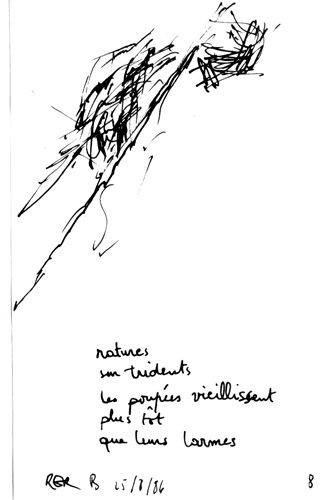 ratures
sur tridents
les poupées vieillissent
plus tôt
que leurs larmes
RER B 25/8/86 8